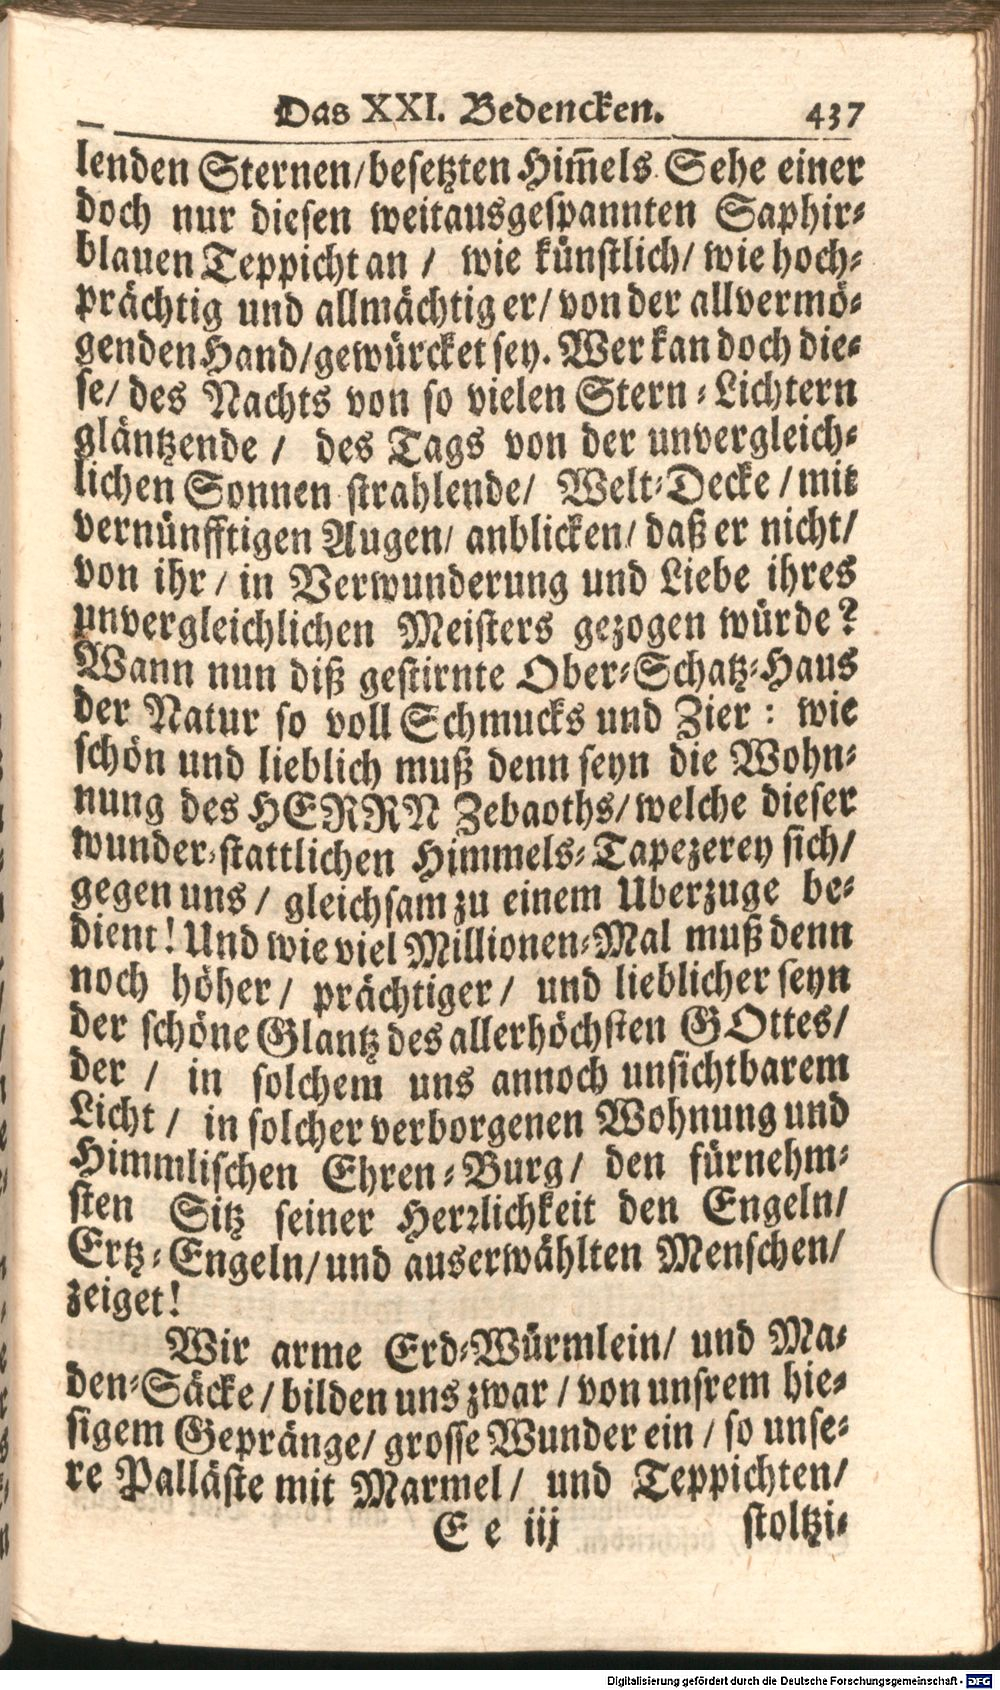 Das XXI. Bedencken. 437
lenden Sternen/besetzten Him̄els Sehe einer
doch nur diesen weitausgespannten Saphir-
blauen Teppicht an / wie künstlich/ wie hoch-
prächtig und allmächtig er/ von der allvermö-
genden Hand/gewürcket sey. Wer kan doch die-
se/ des Nachts von so vielen Stern-Lichtern
gläntzende / des Tags von der unvergleich-
lichen Sonnen strahlende/ Welt-Decke / mit
vernünfftigen Augen/ anblicken/ daß er nicht/
von ihr / in Verwunderung und Liebe ihres
unvergleichlichen Meisters gezogen würde?
Wann nun diß gestirnte Ober-Schatz-Haus
der Natur so voll Schmucks und Zier: wie
schön und lieblich muß denn seyn die Wohn-
nung des HERRN Zebaoths/welche dieser
wunder-stattlichen Himmels-Tapezerey sich/
gegen uns / gleichsam zu einem Uberzuge be-
dient! Und wie viel Millionen-Mal muß denn
noch höher/ prächtiger/ und lieblicher seyn
der schöne Glantz des allerhöchsten GOttes/
der / in solchem uns annoch unsichtbarem
Licht / in solcher verborgenen Wohnung und
Himmlischen Ehren-Burg/ den fürnehm-
sten Sitz seiner Herꝛlichkeit den Engeln/
Ertz-Engeln/und auserwählten Menschen/
zeiget!
Wir arme Erd-Würmlein/ und Ma-
den-Säcke / bilden uns zwar / von unsrem hie-
sigem Gepränge/ grosse Wunder ein / so unse-
re Palläste mit Marmel/ und Teppichten/
E e iij stoltzi-
Digitalisierung gefördert durch die Deutsche Forschungsgemeinschaft - DFG